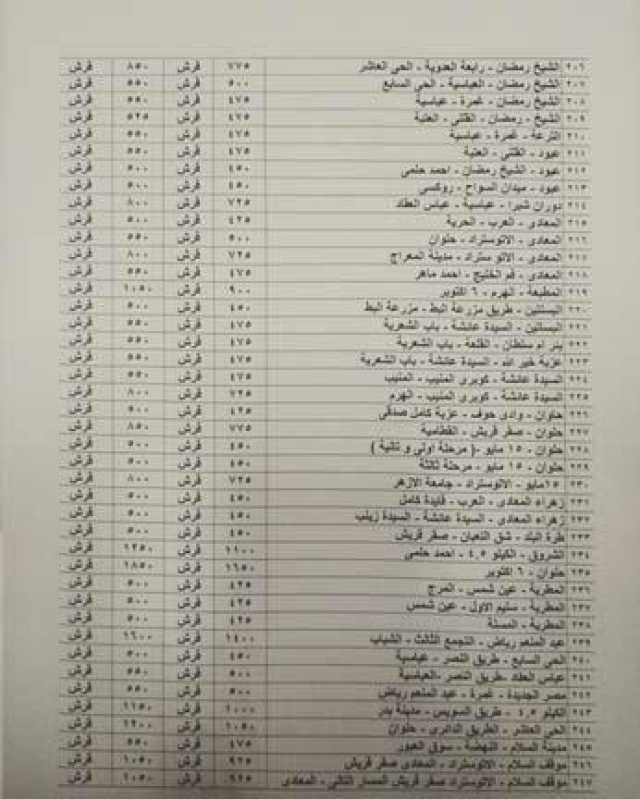 ٢٠٦ الشيخ رمضان - رابعة العدوية - الحى العاشر ٧٧٥ قرش ٨٥٠ قرش
٢٠٧ الشيخ رمضان - العباسية - الحى السابع ٥٠٠ قرش ٥٥٠ قرش
٢٠٨ الشيخ رمضان - غمرة - عباسية ٤٧٥ قرش ٥٥٠ قرش
٢٠٩ الشيخ - رمضان - القللى - العتبة ٤٧٥ قرش ٥٢٥ قرش
٢١٠ الترعة - غمرة - عباسية ٤٧٥ قرش ٥٥٠ قرش
٢١١ عبود - القللى - العتبة ٤٧٥ قرش ٥٥٠ قرش
٢١٢ عبود - الشيخ رمضان - احمد حلمى ٤٥٠ قرش ٥٠٠ قرش
٢١٣ عبود - ميدان السواح - روكسي ٤٥٠ قرش ٥٠٠ قرش
٢١٤ دوران شبرا - عباسية - عباس العقاد ٧٢٥ قرش ٨٠٠ قرش
٢١٥ المعادى - العرب - الحرية ٤٢٥ قرش ٥٠٠ قرش
٢١٦ المعادى - الاتوستراد - حلوان ٥٠٠ قرش ٥٥٠ قرش
٢١٧ المعادى - الاتو ستراد - مدينة المعراج ٧٢٥ قرش ٨٠٠ قرش
٢١٨ المعادى - فم الخليج - احمد ماهر ٤٧٥ قرش ٥٥٠ قرش
٢١٩ المطبعة - الهرم - ٦ اكتوبر ٩٠٠ قرش ١٠٥٠ قرش
٢٢٠ البساتين - طريق مزرعة البط - مزرعة البط ٤٥٠ قرش ٥٠٠ قرش
٢٢١ البساتين - السيدة عائشة - باب الشعرية ٤٧٥ قرش ٥٥٠ قرش
٢٢٢ بئر ام سلطان - القلعة - باب الشعرية ٤٧٥ قرش ٥٥٠ قرش
٢٢٣ عزبة خير الله - السيدة عائشة - باب الشعرية ٤٧٥ قرش ٥٥٠ قرش
٢٢٤ السيدة عائشة - كوبرى المنيب - المنيب ٤٧٥ قرش ٥٥٠ قرش
٢٢٥ السيدة عائشة - كوبرى المنيب - الهرم ٧٢٥ قرش ٨٠٠ قرش
٢٢٦ حلوان - وادى حوف - عزبة كامل صدقى ٤٢٥ قرش ٥٠٠ قرش
٢٢٧ حلوان - صقر قريش - القطامية ٧٧٥ قرش ٨٥٠ قرش
٢٢٨ حلوان - ١٥ مايو -( مرحلة اولى و ثانية ) ٤٥٠ قرش ٥٠٠ قرش
٢٢٩ حلوان - ١٥ مايو - مرحلة ثالثة ٤٥٠ قرش ٥٠٠ قرش
٢٣٠ ١٥مايو - الاتوستراد - جامعة الازهر ٧٢٥ قرش ٨٠٠ قرش
٢٣١ زهراء المعادى - العرب - فايدة كامل ٤٥٠ قرش ٥٠٠ قرش
٢٣٢ زهراء المعادى - السيدة عائشة - السيدة زينب ٤٥٠ قرش ٥٠٠ قرش
٢٣٣ طرة البلد - شق الثعبان - صقر قريش ٤٥٠ قرش ٥٠٠ قرش
٢٣٤ الشروق - الكيلو ٤,٥ - احمد حلمى ١١٠٠ قرش ١٢٥٠ قرش
٢٣٥ حلوان - ٦ اكتوبر ١٦٥٠ قرش ١٨٥٠ قرش
٢٣٦ المطرية - عين شمس - المرج ٤٢٥ قرش ٥٠٠ قرش
٢٣٧ المطرية - سليم الاول - عين شمس ٤٢٥ قرش ٥٠٠ قرش
٢٣٨ المطرية - المسلة ٤٢٥ قرش ٥٠٠ قرش
٢٣٩ عبد المنعم رياض - التجمع الثالث - الشباب ١٤٠٠ قرش ١٦٠٠ قرش
٢٤٠ الحى السابع - طريق النصر - عباسية ٤٥٠ قرش ٥٠٠ قرش
٢٤١ عباس العقاد -طريق النصر -العباسية ٥٠٠ قرش ٥٥٠ قرش
٢٤٢ مصر الجديدة - غمرة - عبد المنعم رياض ٥٠٠ قرش ٥٥٠ قرش
٢٤٣ الكيلو ٤,٥ - طريق السويس - مدينة بدر ١٠٠٠ قرش ١١٥٠ قرش
٢٤٤ الحى العاشر - الطريق الدائرى - حلوان ١٠٥٠ قرش ١٢٠٠ قرش
٢٤٥ مدينة السلام - النهضة - سوق العبور ٤٧٥ قرش ٥٥٠ قرش
٢٤٦ موقف السلام - الاتوستراد - المعادى صقر قريش ٩٢٥ قرش ١٠٥٠ قرش
٢٤٧ موقف السلام - الاتوستراد صقر قريش المسار الثانى - المعادى ٩٢٥ قرش ١٠٥٠ قرش